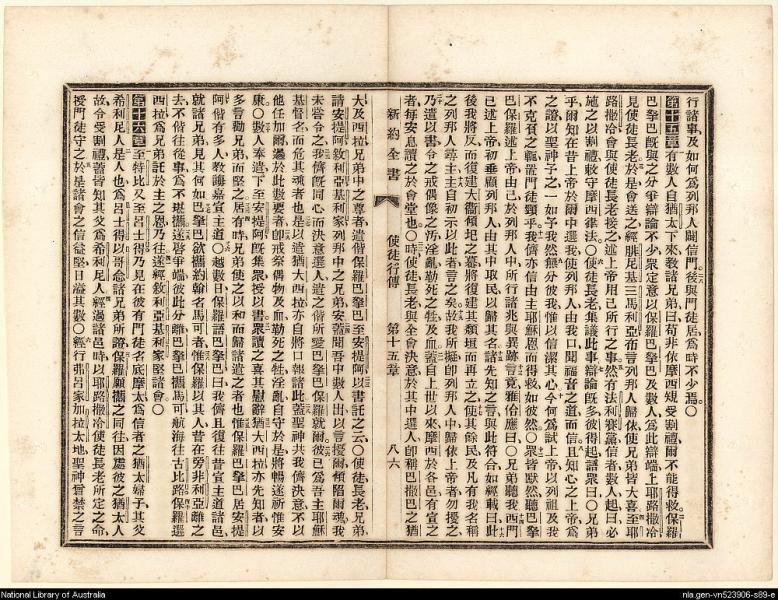 行諸事及如何為列邦人闢信門後與門徒居為時不少焉〇
第十五章有數人自猶太下來教諸兄弟曰苟非依摩西規受割禮爾不能得救保羅
巴拏巴既與之分爭辯論不少眾定意以保羅巴拏巴及數人為此辯端上耶路撒冷
見使徒長老於是會送之經腓尼基三馬利亞布言列邦人歸依使兄弟皆大喜至耶
路撒冷會與使徒長老接之述上帝用己所行之事然有法利賽黨信者數人起曰必
施之以割禮敕守摩西律法〇使徒長老集議此事辯論既多彼得起語眾曰〇兄弟
乎爾知在昔上帝於爾中選我使列邦人由我口聞福音之道而信且知心之上帝為
之證以聖神予之一如予我然無分彼我惟以信潔其心今何為試上帝以列祖及我
不克負之軛置門徒頸乎我儕亦信由主耶穌恩而得救如彼然〇眾皆默然聽巴拏
巴保羅述上帝由己於列邦人中所行諸兆與異跡言竟雅各應曰〇兄弟聽我西門
已述上帝初垂顧列邦人由其中取民以歸其名諸先知之言與此符合如經載曰此
後我將反而復建大衛傾圯之幕將復建其頹垣而再立之使其餘民及凡有我名稱
之列邦人尋主主自初示以此者言之矣故我所擬即列邦人中歸依上帝者勿擾之
乃遺以書令之戒偶像之污淫亂勒死之牲及血蓋自上世以來摩西於各邑有宣之
者每安息讀之於會堂也〇時使徒長老與全會決意於其中選人即稱巴撒巴之猶
新約全書
使徒行傳
第十五章
八六
大及西拉兄弟中之尊者遣偕保羅巴拏巴至安提阿以書託之云〇使徒長老兄弟
請安提阿敘利亞基利家列邦中之兄弟安蓋聞吾中數人出以言擾爾傾陷爾魂我
未嘗令之我儕既同心而決意選人遣之偕所愛巴拏巴保羅就爾彼已為吾主耶穌
基督名而危其魂者也是以遣猶大西拉亦自將口報諸此蓋聖神共我儕決意不以
他任加爾過於此數要者即戒祭偶物及血勒死之牲淫亂自守於是將暢遂祈惟安
康〇數人奉遣下至安提阿既集眾授以書眾讀之喜其慰辭猶大西拉亦先知者以
多言勸兄弟而堅之居有時兄弟使之以和而歸諸遣之者也惟保羅巴拏巴居安提
阿偕有多人教誨嘉宣主道〇越數日保羅語巴拏巴曰我儕且復往昔宣主道諸邑
就諸兄弟見其何如巴拏巴欲攜約翰名馬可者惟保羅以其人昔在旁非利亞離之
去不偕往從事為不堪攜遂啓爭端彼此分離巴拏巴攜馬可航海往古比路保羅選
西拉為兄弟託於主之恩乃往遂經敘利亞基利家堅諸會〇
第十六章至特比又至呂士得乃見在彼有門徒名底摩太為信者之猶太婦子其父
希利尼人是人也為呂士得以哥念諸兄弟所證保羅願攜之同往因處彼之猶太人
故令受割禮蓋皆知其父為希利尼人經過諸邑時以耶路撒冷使徒長老所定之命
授門徒守之於是諸會之信益堅日溢其數〇經行弗呂家加拉太地聖神嘗禁之言
National Library of Australia
nla.gen-vn523906-s89-e